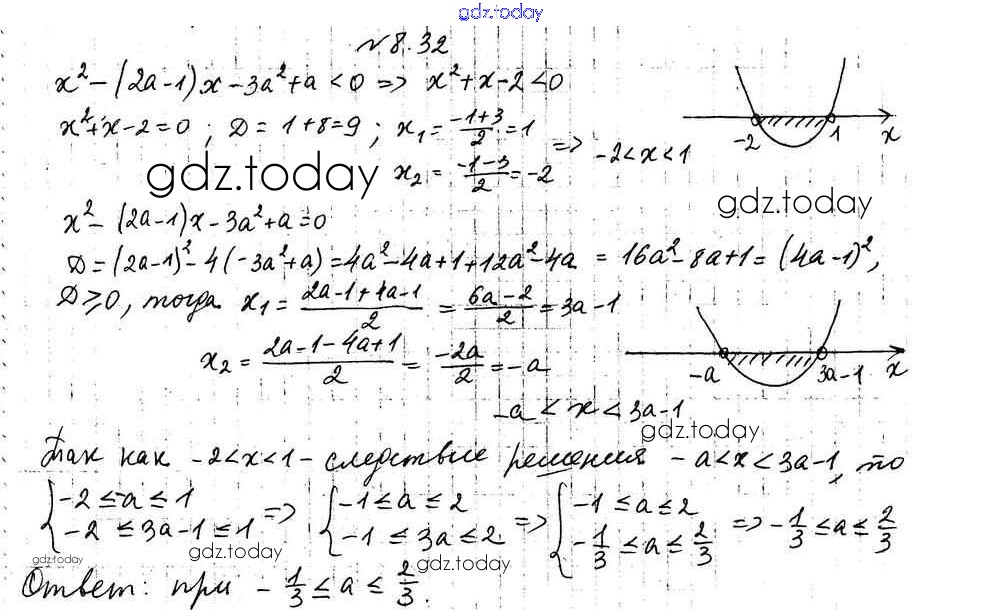 gdz.today
№ 8.32
x² - (2a-1)x - 3a² + a < 0 => x² + x - 2 < 0
x² + x - 2 = 0 ; D = 1+8=9 ; x₁ = (-1+3)/2 = 1
x₂ = (-1-3)/2 = -2
=> -2<x<1
-2 1 x
gdz.today
gdz.today
x² - (2a-1)x - 3a² + a = 0
D = (2a-1)² - 4(-3a²+a) = 4a² - 4a + 1 + 12a² - 4a = 16a² - 8a + 1 = (4a-1)²,
D ≥ 0, тогда x₁ = (2a-1+4a-1)/2 = (6a-2)/2 = 3a-1
x₂ = (2a-1-4a+1)/2 = -2a/2 = -a
-a 3a-1 x
-a < x < 3a-1
gdz.today
Так как -2<x<1 - следствие решения -a<x<3a-1, то
{ -2 ≤ -a ≤ 1 => { -1 ≤ a ≤ 2 => { -1 ≤ a ≤ 2 => -1/3 ≤ a ≤ 2/3
-2 ≤ 3a-1 ≤ 1 -1 ≤ 3a ≤ 2 -1/3 ≤ a ≤ 2/3
gdz.today
gdz.today
gdz.today
Ответ: при -1/3 ≤ a ≤ 2/3.